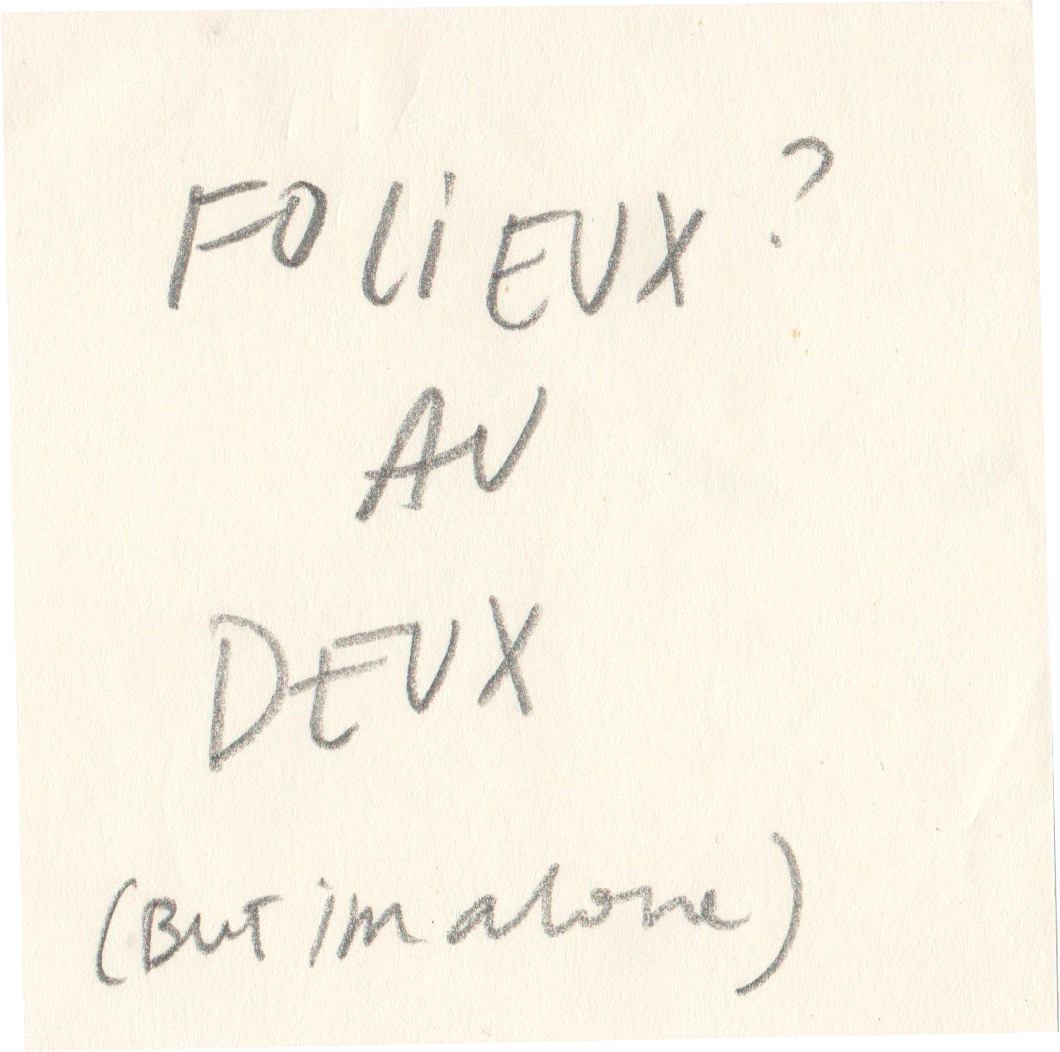 FOLiEUX?
AU
DEUX
(BUT im alone)